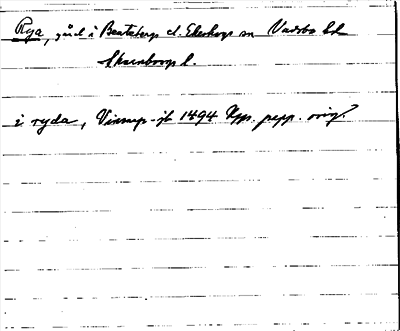 Rya, gård i Beateberg el. Ekeskogs sn Vadsbo hd
Skaraborgs l.
i ryda, Vinsarp-jb 1494 Upps. papp. orig.